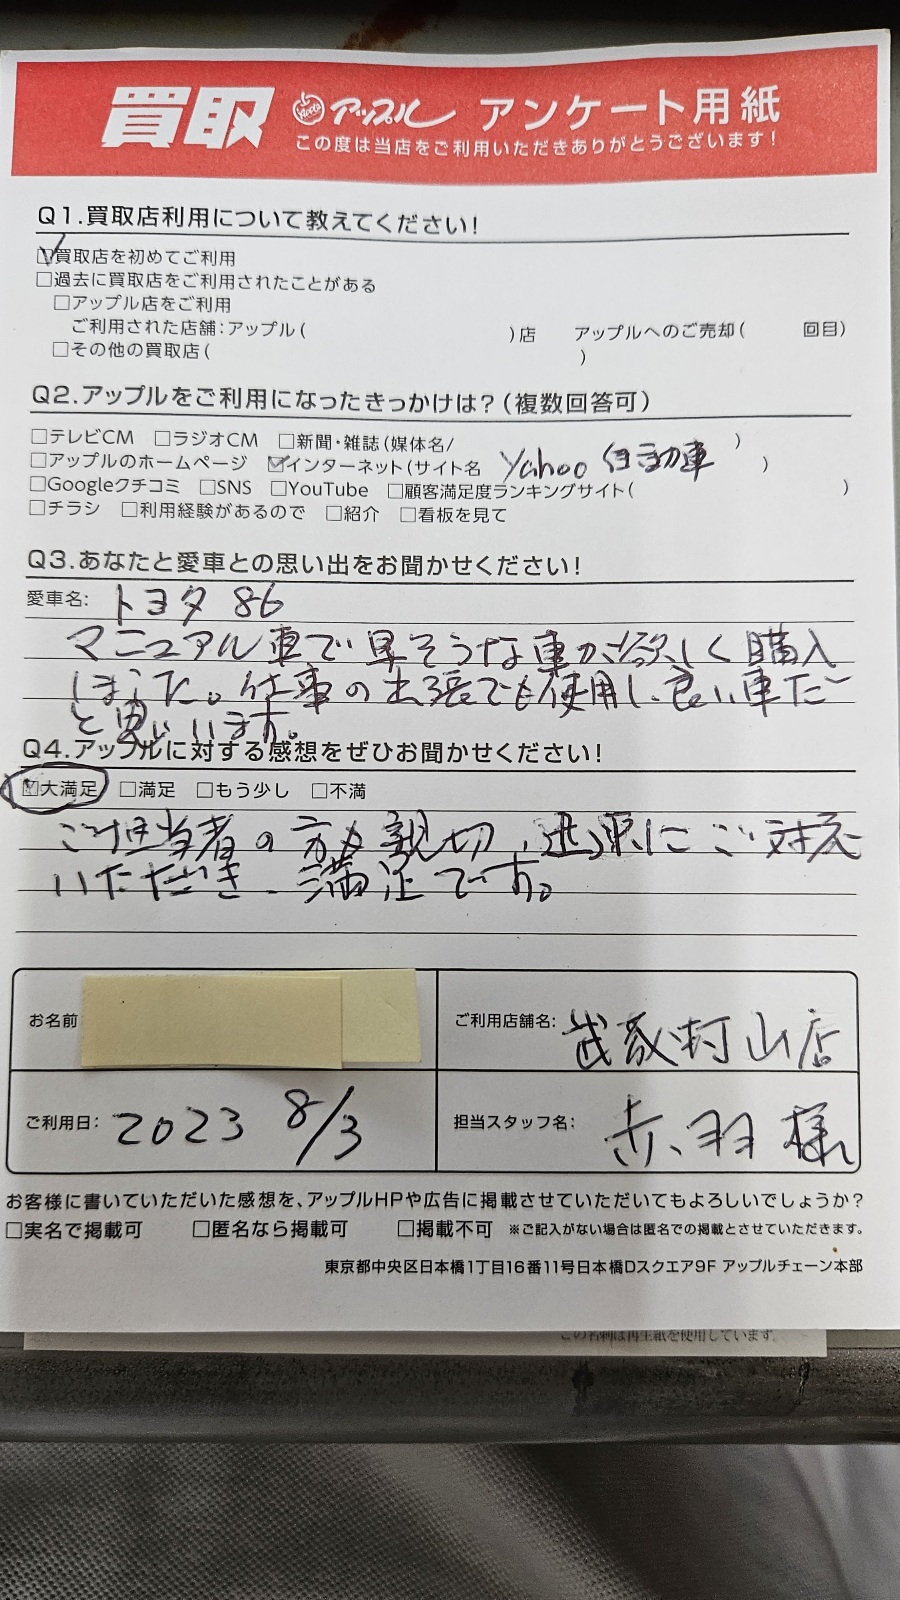 買取 アップル アンケート用紙
この度は当店をご利用いただきありがとうございます!
Q1.買取店利用について教えてください!
☑買取店を初めてご利用
□過去に買取店をご利用されたことがある
□アップル店をご利用
ご利用された店舗:アップル( )店 アップルへのご売却( 回目)
□その他の買取店( )
Q2.アップルをご利用になったきっかけは?(複数回答可)
□テレビCM □ラジオCM □新聞・雑誌(媒体名/ )
□アップルのホームページ ☑インターネット(サイト名 Yahoo 自動車 )
□Googleクチコミ □SNS □YouTube □顧客満足度ランキングサイト( )
□チラシ □利用経験があるので □紹介 □看板を見て
Q3.あなたと愛車との思い出をお聞かせください!
愛車名: トヨタ 86
マニュアル車で早そうな車が欲しく購入
しました。仕事の出張でも使用し、良い車だ
と思います。
Q4.アップルに対する感想をぜひお聞かせください!
☑大満足 □満足 □もう少し □不満
ご担当者の方も親切、迅速にご対応
いただき、満足です。
お名前
ご利用店舗名: 武蔵村山店
ご利用日: 2023 8/3
担当スタッフ名: 赤羽 様
お客様に書いていただいた感想を、アップルHPや広告に掲載させていただいてもよろしいでしょうか?
□実名で掲載可 □匿名なら掲載可 □掲載不可 ※ご記入がない場合は匿名での掲載とさせていただきます。
東京都中央区日本橋1丁目16番11号日本橋Dスクエア9F アップルチェーン本部
この名刺は再生紙を使用しています。